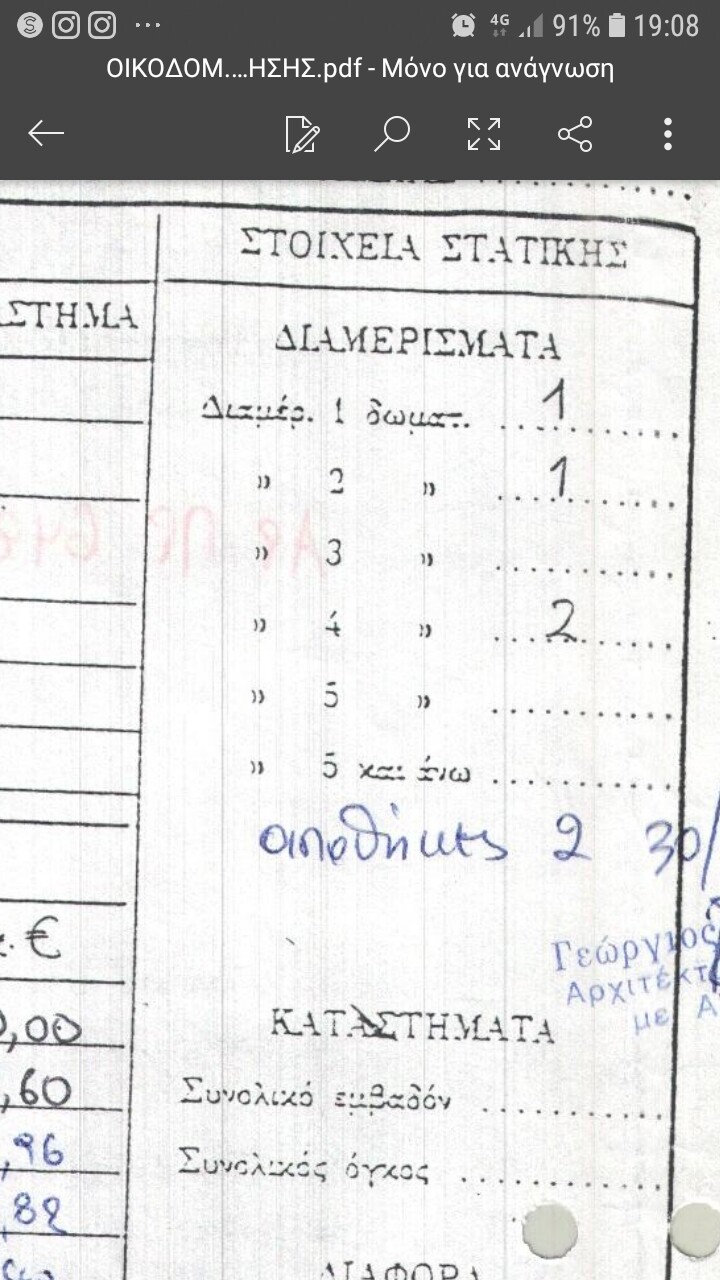 91% 19:08
ΟΙΚΟΔΟΜ....ΗΣΗΣ.pdf - Μόνο για ανάγνωση
ΣΤΟΙΧΕΙΑ ΣΤΑΤΙΚΗΣ
ΣΤΗΜΑ
ΔΙΑΜΕΡΙΣΜΑΤΑ
Διαμέρ. 1 δωματ. 1
» 2 » 1
» 3 »
» 4 » 2
» 5 »
» 5 και άνω
αποθήκες 2 30/
€
Γεώργιος
Αρχιτέκτ
με Α
0,00 ΚΑΤΑΣΤΗΜΑΤΑ
,60 Συνολικό εμβαδόν
,96 Συνολικός όγκος
,82
ΔΙΑΦΟΡΑ